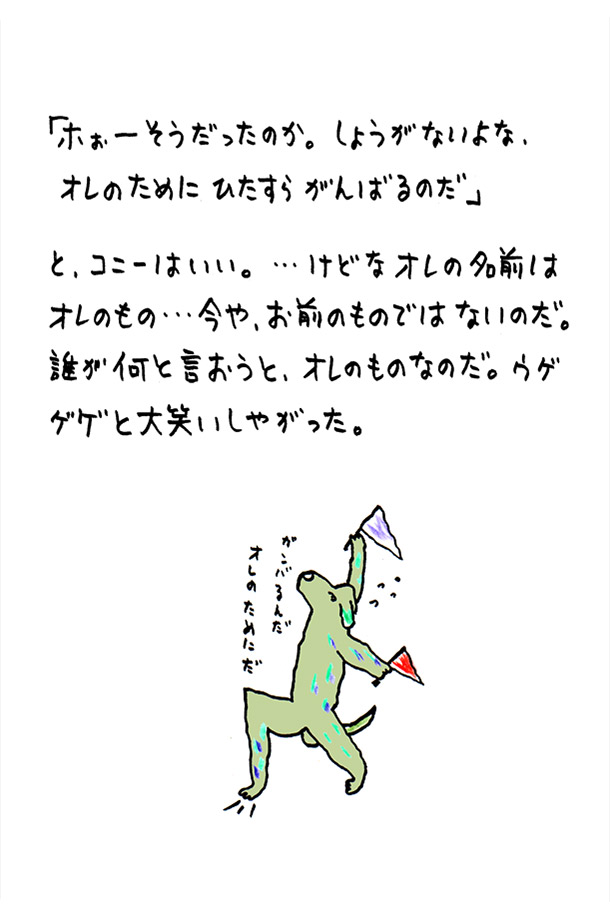 「ホぉーそうだったのか。しょうがないよな、
オレのために ひたすら がんばるのだ」
と、コニーはいい。…けどな オレの名前は
オレのもの…今や、お前のものではないのだ。
誰が何と言おうと、オレのものなのだ。ウゲ
ゲゲと大笑いしやがった。
ガンバるんだ
オレのためにだ